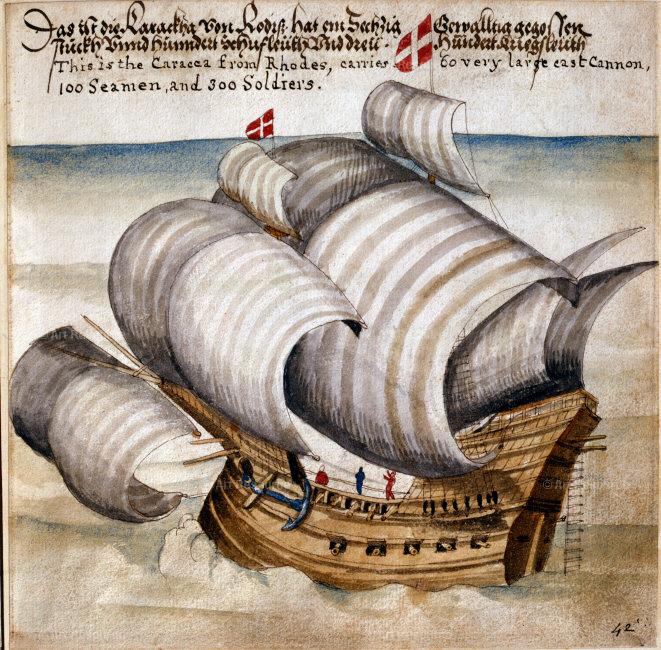 Das ist die Karackha von Rodiß hat ein Sechzig Gewalltig gegossen
stuckh Vnnd Hunndert Schifleüth Vnd dreii Hundert kriegsleuth
This is the Caracca from Rhodes, carries 60 very large cast Cannon,
100 Seamen, and 300 Soldiers.
42